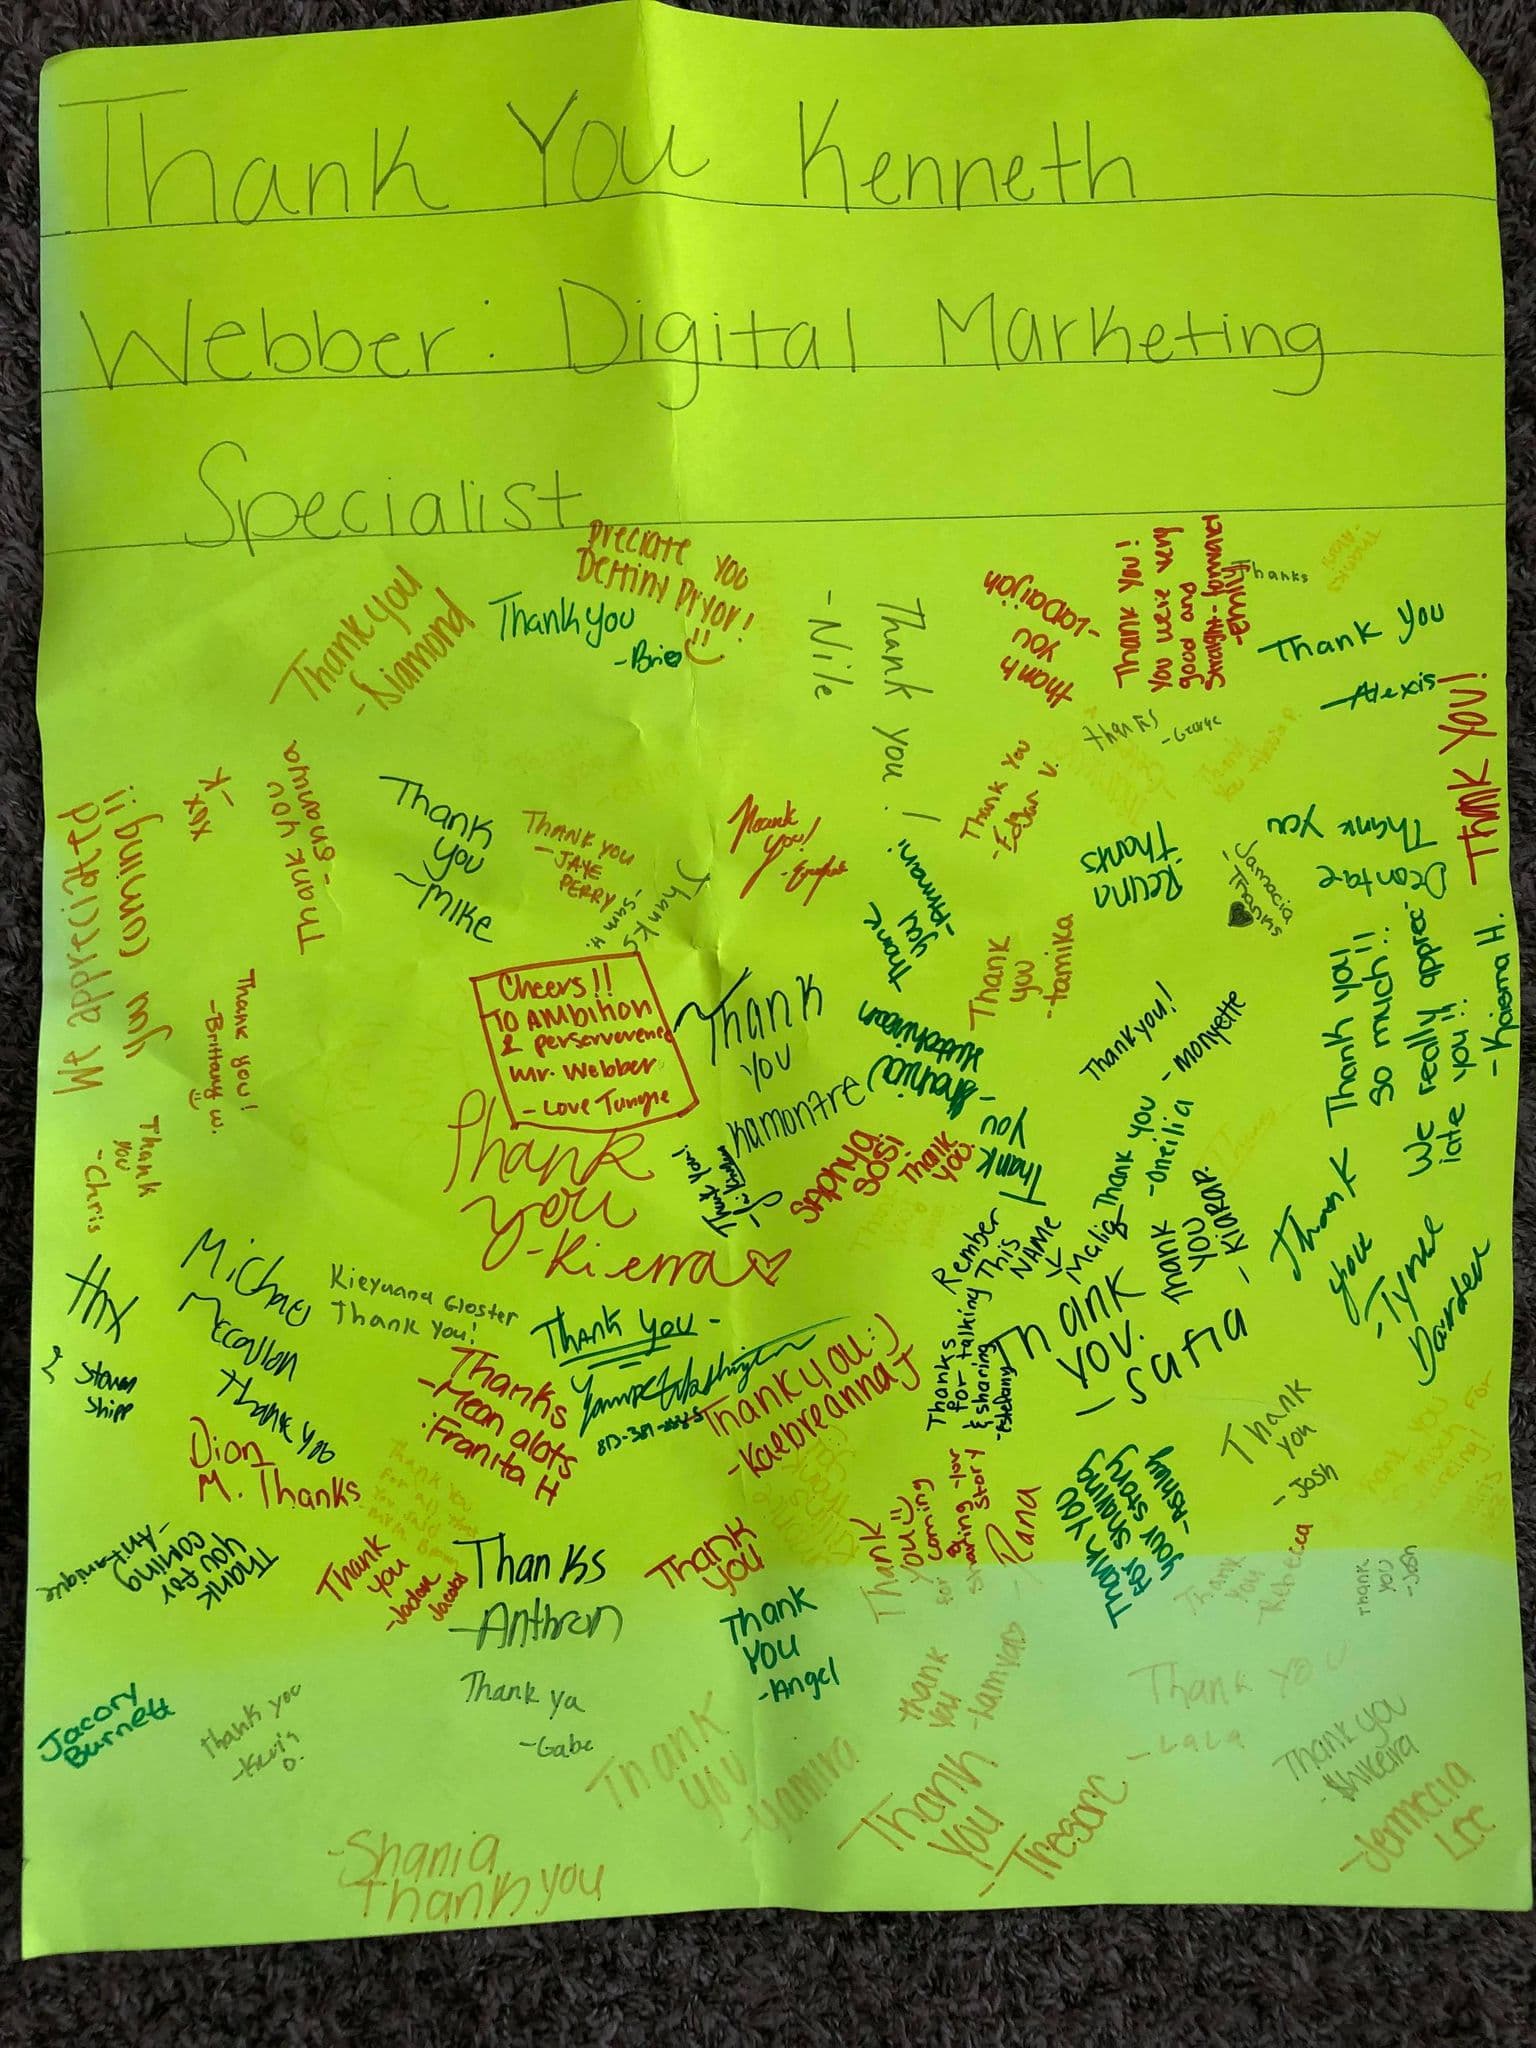 Thank You Kenneth
Webber: Digital Marketing
Specialist
preciate you
Destiny Pryor!
Thank you
-Diamond
Thank you
-Brie
Thank you!
-Nile
thank
you
-LaDaijah
Thank you!
you were very
good and
straight-forward
-Emily
Thanks
Thank you
-Alexis
Thanks
-George
Thank you
-Edgar V.
Thank
you
K-
xox
Thank
you
-Mike
Thank you
-JAYE
PERRY
Thanks
-Sam H.
Thank
you!
Thank
you!
-Armani
Thank
you
-tamika
Reuna
Thanks
-Jamacia
Thanks
Thank you
Deontae
THANK YOU!
We appreciated
you coming!!
Thank you!
-Brittany W.
Thank
you
-Chris
Cheers!!
TO AMbition
& perserverence
Mr. Webber
-Love Tungie
Thank
you
-Kierra
THANK
YOU
Kamontre
Thank
you
-Shania
Hutchinson
Thank you!
-monyette
Thank you!
so much!!
We really apprec-
iate you!!
-Kaisma H.
Thank you
-oneilia
SAPhya
SOSi
Thank
you.
Thank
you
-Tynae
Thank
you
-KiaraP.
Rember
This
NAME
Maliq
Thanks
for talking
& sharing
Thank
you.
-Safia
thx
Steven
Shipp
Michael
Mccollon
thank you
Kieyuana Gloster
Thank you!
THANK YOU-
Thanks
-Mean alots
:Franita H
Thank you :)
-Kaebreanna J
Dion
M. Thanks
Thank you
for all that
you said
Thank
you for
coming
-Antanique
Thank
you
-Jadon
Jacobs
Thanks
-Anthron
Thank
you
Thank
you
-Angel
Thank
you
for coming
& sharing your
story
-Rana
Thank you
for sharing
your story
-Ashley
Thank
you
-Josh
Thank you
so much for
Thank
you
-Rebecca
Thank
you
-Josh
Jacory
Burnett
Thank you
-Kevis
D.
Thank ya
-Gabe
Thank
you
-Yamira
thank
you
Thank
you
-Tresorc
Thank you
-LaLa
Thank you
Shikeira
-Jermecia
Lee
-Shania
Thank you